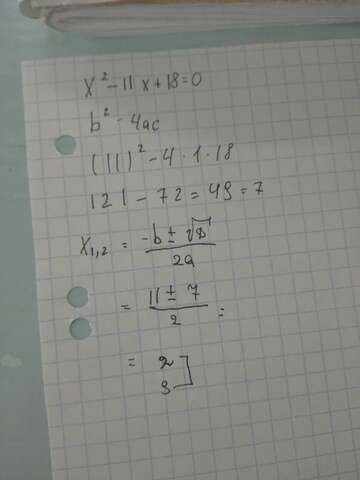 x² - 11x + 18 = 0
b² - 4ac
(11)² - 4 · 1 · 18
121 - 72 = 49 = 7
x₁,₂ = (-b ± √D) / 2a
= (11 ± 7) / 2 =
= 2
9 ]